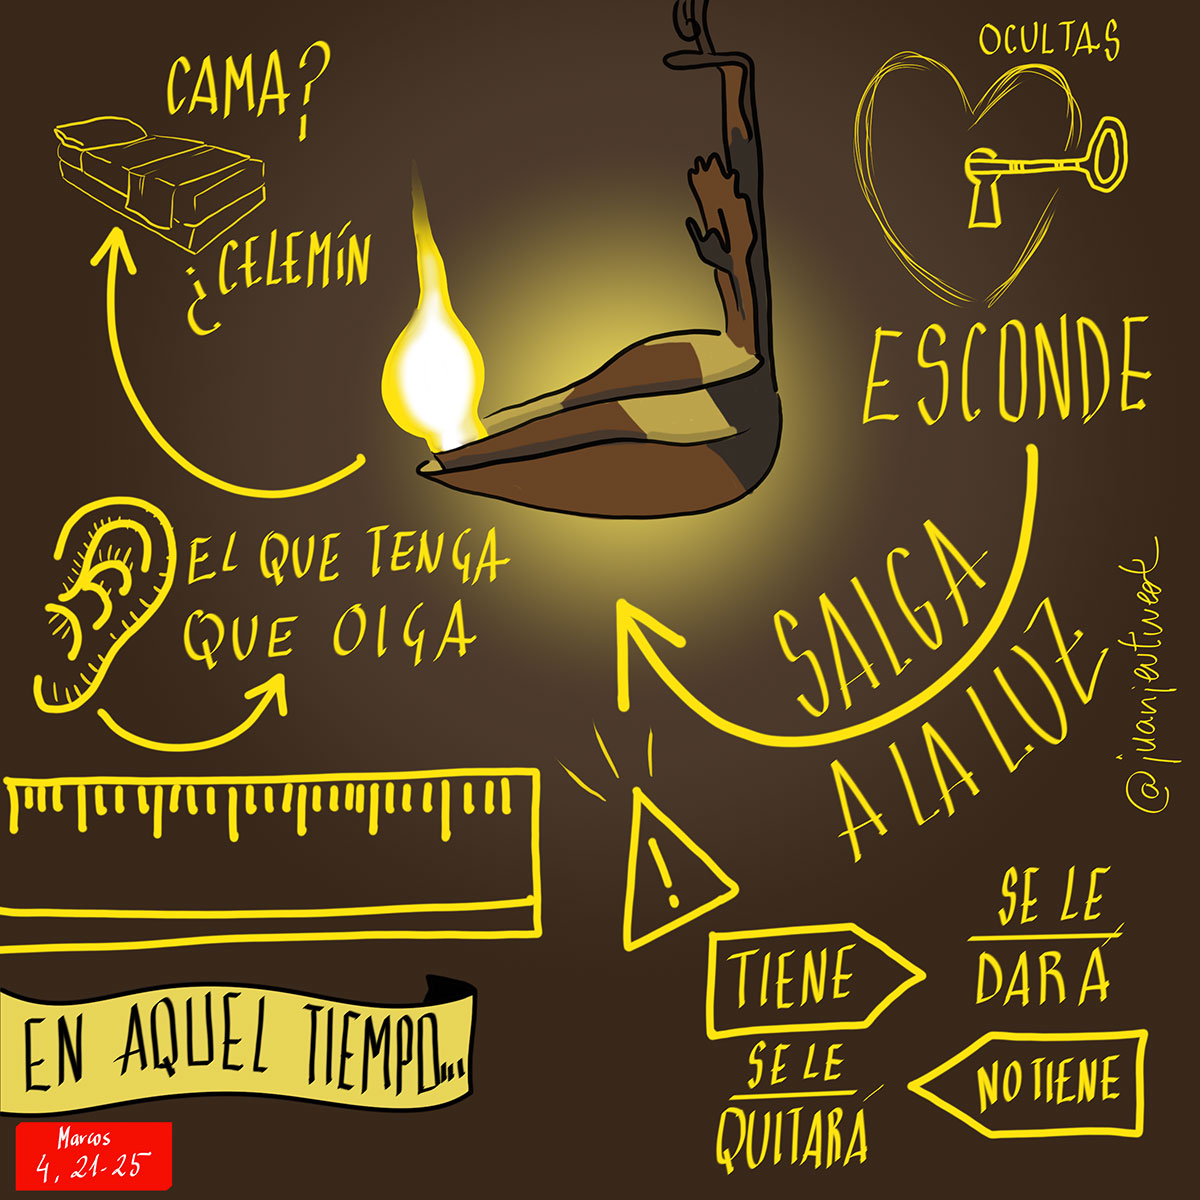 CAMA?
¿CELEMÍN
OCULTAS
ESCONDE
SALGA
A LA LUZ
@juanjevtwest
EL QUE TENGA
QUE OIGA
!
TIENE
SE LE
DARÁ
SE LE
QUITARÁ
NO TIENE
EN AQUEL TIEMPO...
Marcos
4, 21-25